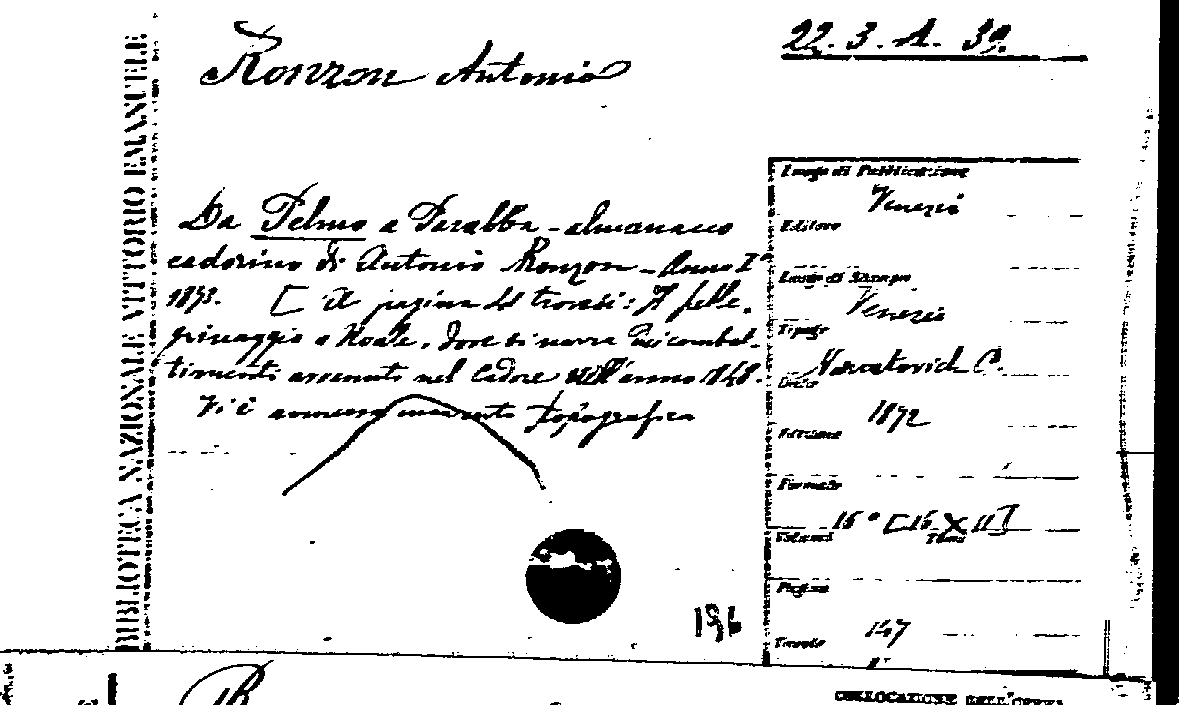 BIBLIOTECA NAZIONALE VITTORIO EMANUELE
Ronzon Antonio
22. 3. A. 39.
Da Pelmo a Peralba - almanacco
cadorino di Antonio Ronzon - Anno I°
1873. [ A pagina trovasi: Il pelle-
grinaggio a Roale, dove si narra dei combat-
timenti avvenuti nel Cadore nell'anno 1848.
Vi è annessa una carta topografica
196
Luogo di Pubblicazione
Venezia
Editore
Luogo di Stampa
Venezia
Tipogr.
Naratovich C.
Data
1872
Edizione
Formato
16° [16 X 11]
Volumi Tomi
Pagine
147
Tavole
1
COLLOCAZIONE DELL'OPERA